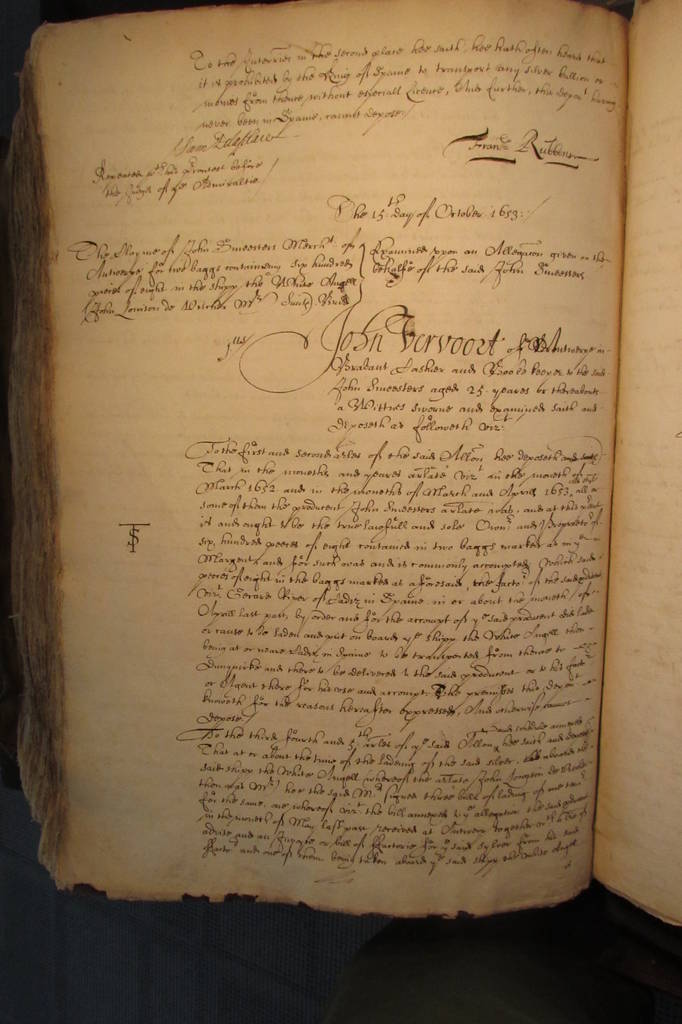 To the Interries in the second place hee saith hee hath often heard that
it is prohibited by the King of Spaine to transport any silver bullion or
monies from thence without especiall Licence, And further, this depont having
never been in Spaine, cannot depose
Repeated wth his Cont before
the Judges of ye Admiraltie
Franc: Rubbens
The 15th day of October 1653:
The Clayme of John Smeesters Mercht of
Antwerpe for two baggs containeing six hundred
peeces of eight in the shipp the White Angell
John de Mr
Examined upon an Allegacon given on the
behalfe of the said John Smeesters
John Vervoort of Antwerpe in
Brabant Cashier and Booke keeper to the said
John Smeesters aged 25 yeares or thereabouts
a Wittnes sworne and examined saith and
deposeth as followeth vizt
To the first and second arles of the said Allon hee deposeth and saith
That in the moneths and yeares arlate vizt in the moneth of
March 1652 and in the moneths of March and Aprill 1653 all or
some of them the producent John Smeesters arlate was, and at this
is and ought to be the true lawfull and sole Owner and Proprietor of
six hundred peeces of eight contained in two baggs marked as in ye
Margent, and for such was and is commonly accompted, Which said
peeces of eight in the baggs marked as aforesaid, the factor of the said producent
vizt Gerard River of Cadiz in Spaine in or about the moneth of
Aprill last past, by order and for the accompt of ye said producent did lade
or cause to be laden and put on board ye shipp the White Angell then
being at or neare Cadiz in Spaine to be transported from thence to
Dunquirke and there to be delivered to the said producent or to his factor
or Agent there for his use and accompt. The premisses this depont
knoweth for the reasons hereafter expressed, And otherwise cannot
depose
To the third fourth and 5th arles of ye said Allon hee saith and deposeth
That at or about the time of the lading of the said silver, aboard the
said shipp the White Angell (whereof the arlate John de
then was Mr) hee the said Mr signed three bills of lading of one tenor
for the same, one whereof vizt the bill annexed to ye allegation the said producent
in the moneth of May last past received at Antwerp together with a letter of
advise and an Invoyce or bill of Factorie for ye said sylver from his said
Factor and one of them being taken aboard ye said shipp the White Angell